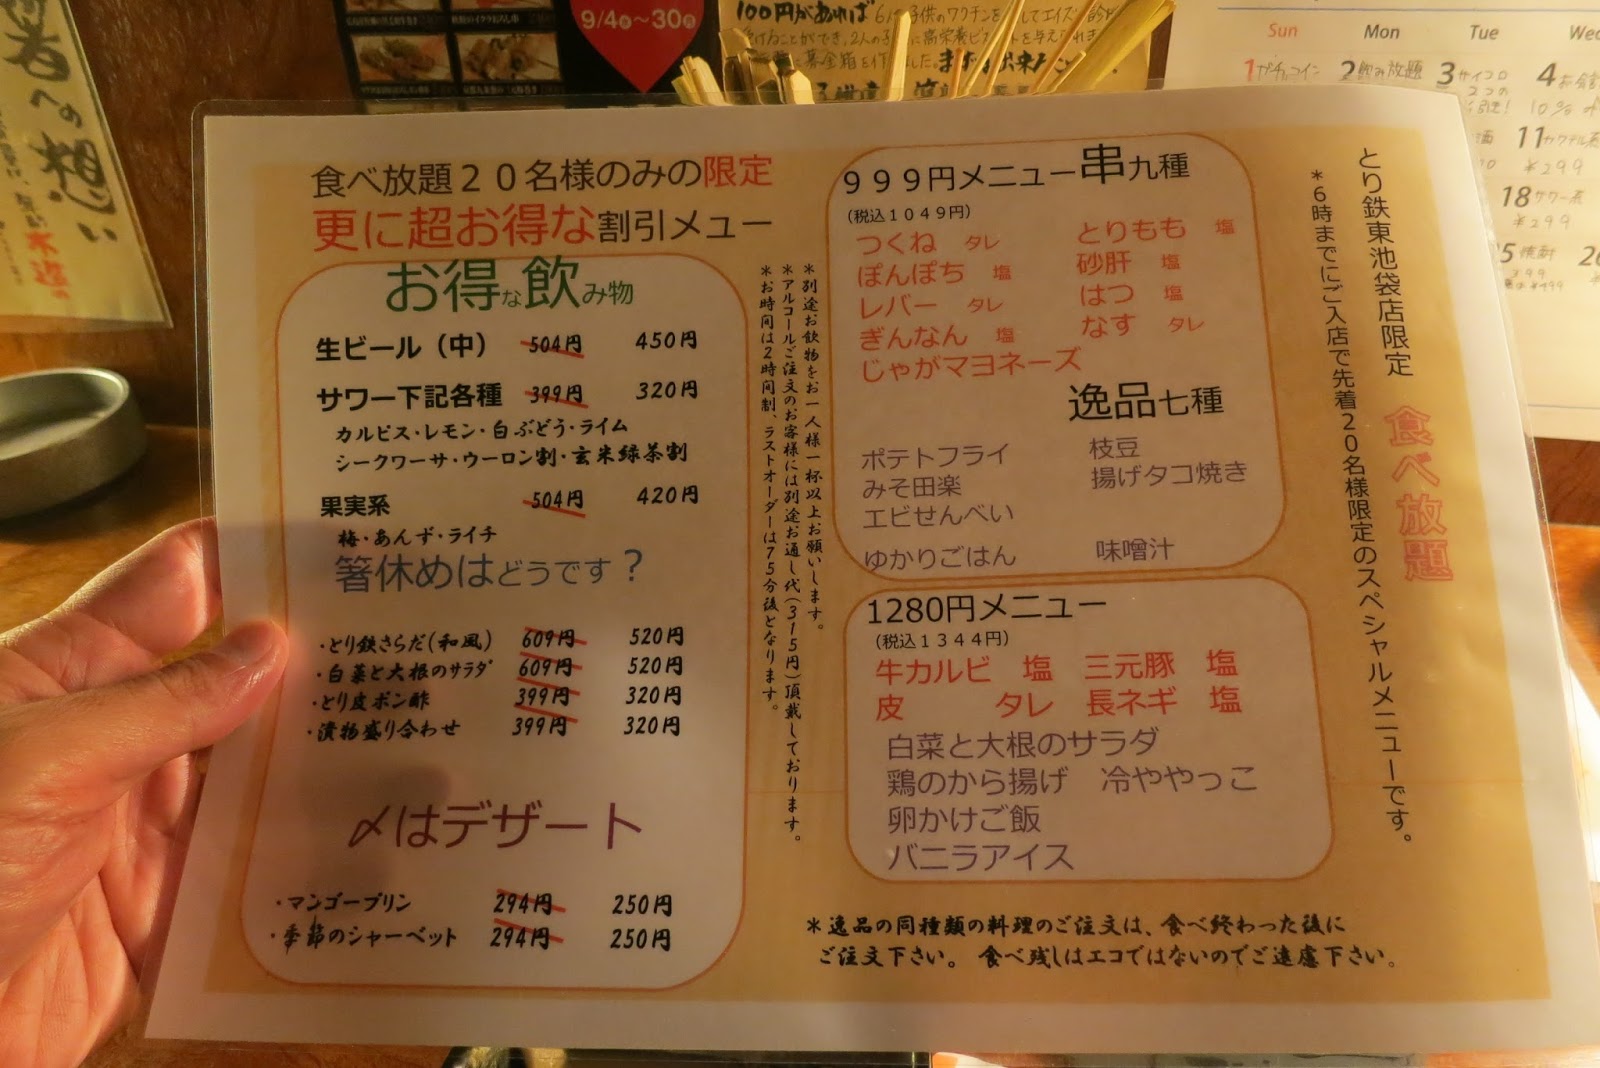 9/4㊌～30㊊
100円があれば
者への想い
Sun Mon Tue
1 2 飲み放題 3 サイコロ 4
10%
11 カクテル
¥299
18 サワー
¥299
食べ放題２０名様のみの限定
更に超お得な割引メュー
お得な飲み物
生ビール（中） 504円 450円
サワー下記各種 399円 320円
カルピス・レモン・白ぶどう・ライム
シークワーサ・ウーロン割・玄米緑茶割
果実系 504円 420円
梅・あんず・ライチ
箸休めはどうです？
・とり鉄さらだ(和風) 609円 520円
・白菜と大根のサラダ 609円 520円
・とり皮ポン酢 399円 320円
・漬物盛り合わせ 399円 320円
〆はデザート
・マンゴープリン 294円 250円
・季節のシャーベット 294円 250円
＊別途お飲物をお一人様一杯以上お願いします。
＊アルコールご注文のお客様には別途お通し代(３１５円)頂戴しております。
＊お時間は２時間制、ラストオーダーは７５分後となります。
９９９円メニュー串九種
（税込１０４９円）
つくね タレ とりもも 塩
ぽんぽち 塩 砂肝 塩
レバー タレ はつ 塩
ぎんなん 塩 なす タレ
じゃがマヨネーズ
逸品七種
ポテトフライ 枝豆
みそ田楽 揚げタコ焼き
エビせんべい
ゆかりごはん 味噌汁
1280円メニュー
（税込１３４４円）
牛カルビ 塩 三元豚 塩
皮 タレ 長ネギ 塩
白菜と大根のサラダ
鶏のから揚げ 冷ややっこ
卵かけご飯
バニラアイス
＊逸品の同種類の料理のご注文は、食べ終わった後に
ご注文下さい。 食べ残しはエコではないのでご遠慮下さい。
とり鉄東池袋店限定 食べ放題
＊６時までにご入店で先着２０名様限定のスペシャルメニューです。